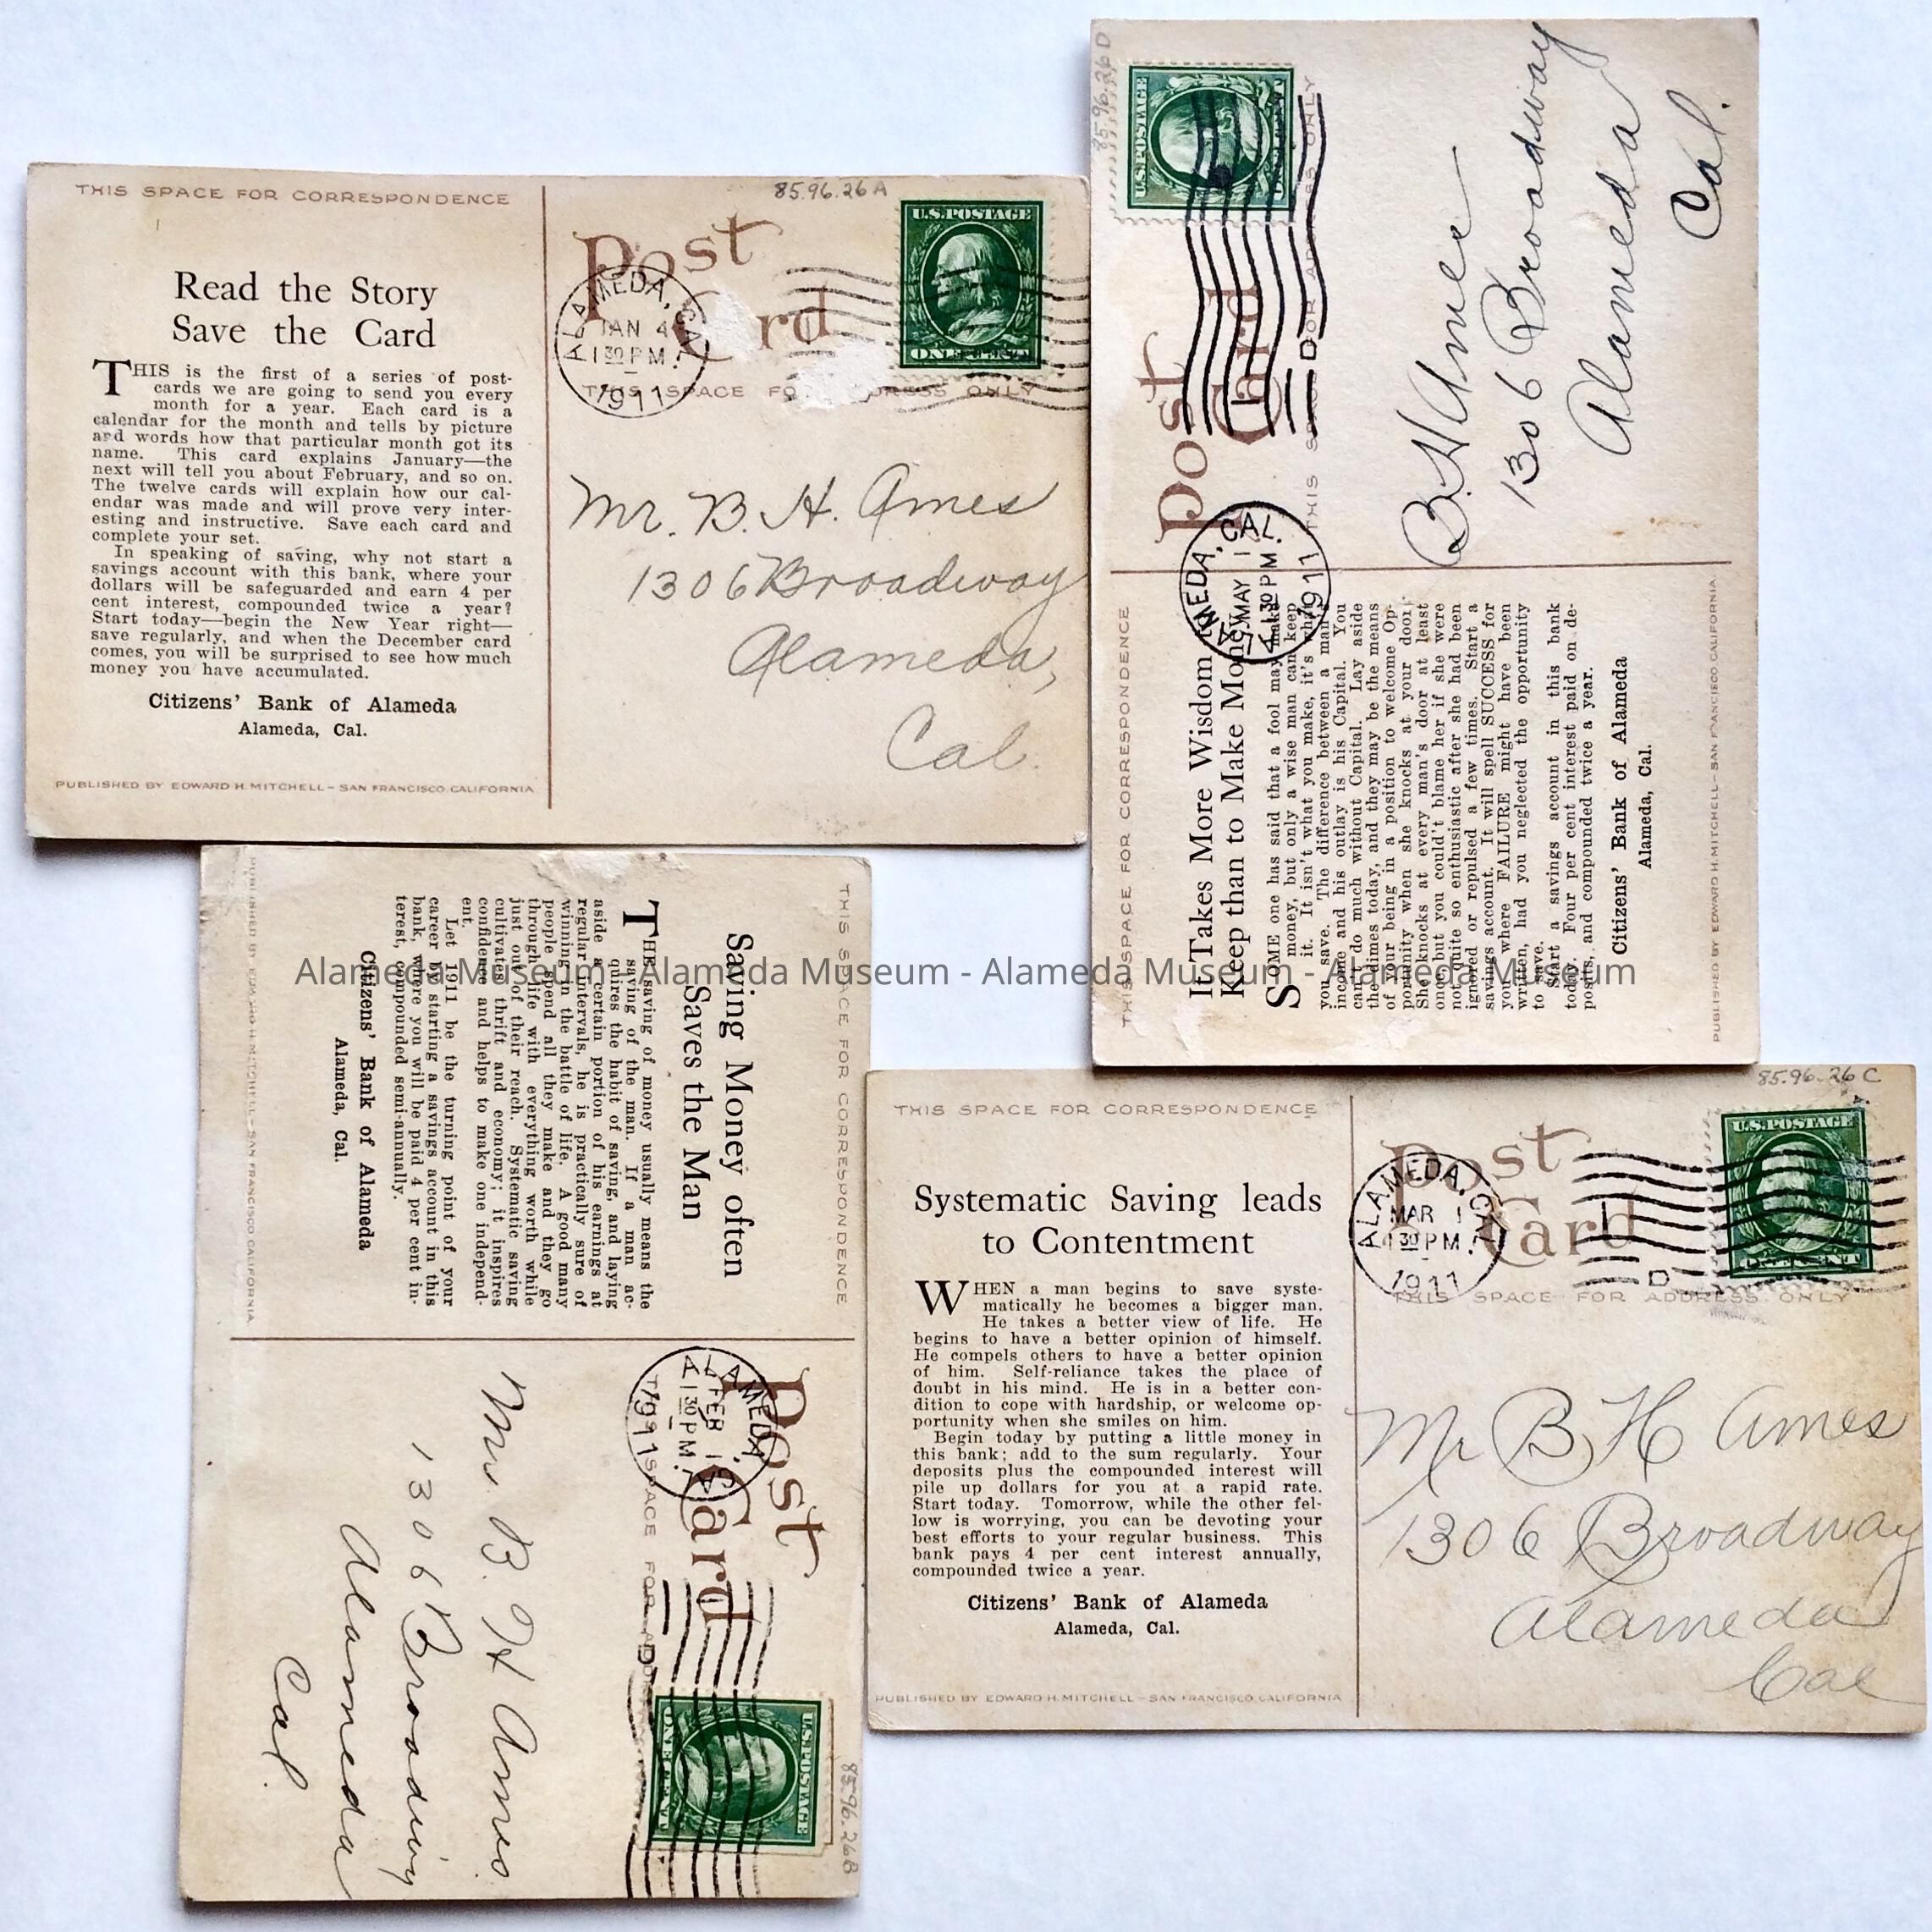 THIS SPACE FOR CORRESPONDENCE
85.96.26 A
Read the Story
Save the Card
THIS is the first of a series of post-
cards we are going to send you every
month for a year. Each card is a
calendar for the month and tells by picture
and words how that particular month got its
name. This card explains January—the
next will tell you about February, and so on.
The twelve cards will explain how our cal-
endar was made and will prove very inter-
esting and instructive. Save each card and
complete your set.
In speaking of saving, why not start a
savings account with this bank, where your
dollars will be safeguarded and earn 4 per
cent interest, compounded twice a year?
Start today—begin the New Year right—
save regularly, and when the December card
comes, you will be surprised to see how much
money you have accumulated.
Citizens' Bank of Alameda
Alameda, Cal.
PUBLISHED BY EDWARD H. MITCHELL – SAN FRANCISCO, CALIFORNIA
Post
Card
U.S. POSTAGE
ALAMEDA, CAL.
JAN 4
1 30 PM
1911
THIS SPACE FOR ADDRESS ONLY
Mr. B. H. Ames
1306 Broadway
Alameda,
Cal.
85.96.26 D
THIS SPACE FOR CORRESPONDENCE
It Takes More Wisdom to
Keep than to Make Money
SOME one has said that a fool may make
money, but only a wise man can keep
it. It isn't what you make, it's what
you save. The difference between a man's
income and his outlay is his Capital. You
can't do much without Capital. Lay aside
the dimes today, and they may be the means
of your being in a position to welcome Op-
portunity when she knocks at your door.
She knocks at every man's door at least
once, but you could't blame her if she were
not quite so enthusiastic after she had been
ignored or repulsed a few times. Start a
savings account. It will spell SUCCESS for
you where FAILURE might have been
written, had you neglected the opportunity
to save.
Start a savings account in this bank
today. Four per cent interest paid on de-
posits, and compounded twice a year.
Citizens' Bank of Alameda
Alameda, Cal.
PUBLISHED BY EDWARD H. MITCHELL – SAN FRANCISCO, CALIFORNIA
Post
Card
U.S. POSTAGE
ALAMEDA, CAL.
MAY 1
4 30 PM
1911
D
THIS SPACE FOR ADDRESS ONLY
B. H Ames
1306 Broadway
Alameda
Cal.
THIS SPACE FOR CORRESPONDENCE
Saving Money often
Saves the Man
THE saving of money usually means the
saving of the man. If a man ac-
quires the habit of saving, and laying
aside a certain portion of his earnings at
regular intervals, he is practically sure of
winning in the battle of life. A good many
people spend all they make and they go
through life with everything worth while
just out of their reach. Systematic saving
cultivates thrift and economy; it inspires
confidence and helps to make one independ-
ent.
Let 1911 be the turning point of your
career by starting a savings account in this
bank, where you will be paid 4 per cent in-
terest, compounded semi-annually.
Citizens' Bank of Alameda
Alameda, Cal.
PUBLISHED BY EDWARD H. MITCHELL – SAN FRANCISCO, CALIFORNIA
85.96.26B
Post
Card
U.S. POSTAGE
ONE CENT
ALAMEDA, CAL.
FEB 1
1 30 PM
1911
D
THIS SPACE FOR ADDRESS
Mr. B. H Ames
1306 Broadway
Alameda
Cal.
85.96.26 C
THIS SPACE FOR CORRESPONDENCE
Systematic Saving leads
to Contentment
WHEN a man begins to save syste-
matically he becomes a bigger man.
He takes a better view of life. He
begins to have a better opinion of himself.
He compels others to have a better opinion
of him. Self-reliance takes the place of
doubt in his mind. He is in a better con-
dition to cope with hardship, or welcome op-
portunity when she smiles on him.
Begin today by putting a little money in
this bank; add to the sum regularly. Your
deposits plus the compounded interest will
pile up dollars for you at a rapid rate.
Start today. Tomorrow, while the other fel-
low is worrying, you can be devoting your
best efforts to your regular business. This
bank pays 4 per cent interest annually,
compounded twice a year.
Citizens' Bank of Alameda
Alameda, Cal.
PUBLISHED BY EDWARD H. MITCHELL – SAN FRANCISCO, CALIFORNIA
Post
Card
U.S. POSTAGE
ALAMEDA, CAL.
MAR 1
1 30 PM
1911
D
THIS SPACE FOR ADDRESS ONLY
Mr B H Ames
1306 Broadway
Alameda
Cal
Alameda Museum - Alameda Museum - Alameda Museum - Alameda Museum